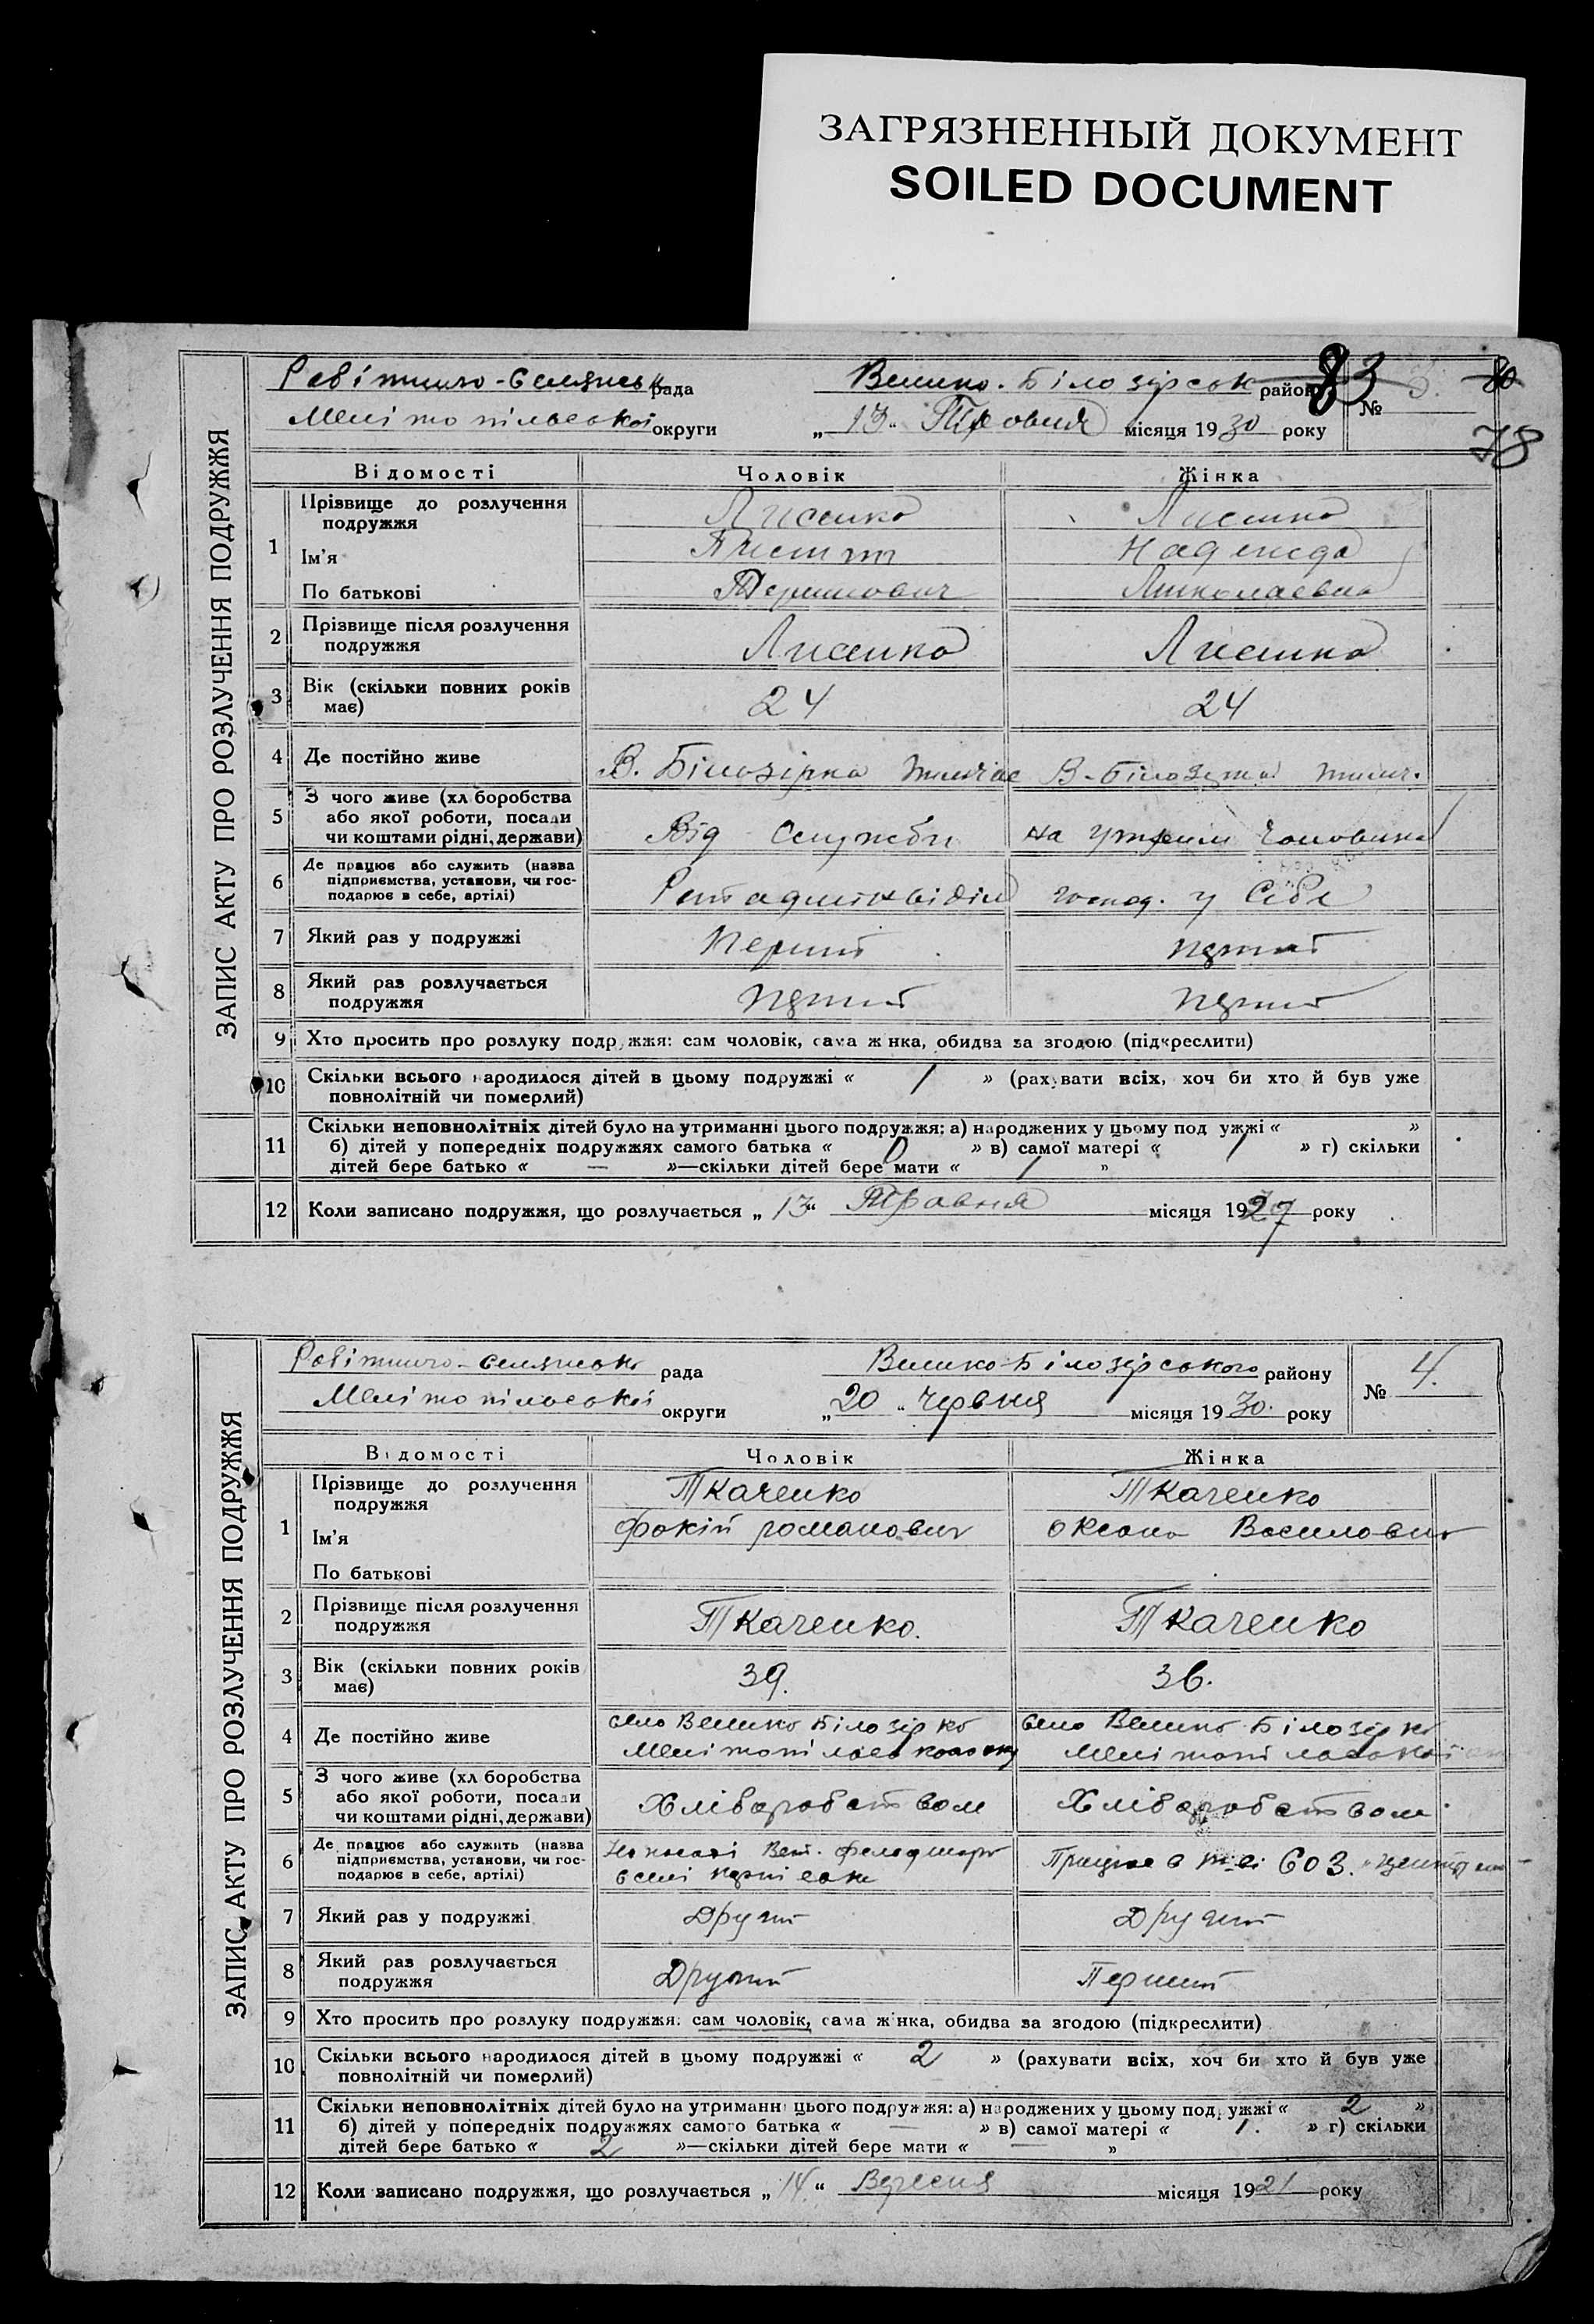 ЗАГРЯЗНЕННЫЙ ДОКУМЕНТ
SOILED DOCUMENT
ЗАПИС АКТУ ПРО РОЗЛУЧЕННЯ ПОДРУЖЖЯ
рада Велико-Білозірськ район 83
Мелітопільської округи „13“ Травня місяця 1930 року № 3. 80
78
Відомості Чоловік Жінка
1 Прізвище до розлучення подружжя Лисенко Лисенко
Ім'я Надежда
По батькові Миколаевна
2 Прізвище після розлучення
подружжя Лисенко Лисенко
3 Вік (скільки повних років
має) 24 24
4 Де постійно живе В. Білозірка В-Білозірка
5 З чого живе (хл боробства
або якої роботи, посади
чи коштами рідні, держави) Від Служби на утрим Чоловика
6 Де працює або служить (назва
підприємства, установи, чи гос-
подарює в себе, артілі) господ. у Себе
7 Який раз у подружжі Перший перший
8 Який раз розлучається
подружжя перший перший
9 Хто просить про розлуку подружжя: сам чоловік, сама жінка, обидва за згодою (підкреслити)
10 Скільки всього народилося дітей в цьому подружжі « 1 » (рахувати всіх, хоч би хто й був уже
повнолітній чи померлий)
11 Скільки неповнолітніх дітей було на утриманні цього подружжя: а) народжених у цьому подружжі « »
б) дітей у попередніх подружжях самого батька « 0 » в) самої матері « 1 » г) скільки
дітей бере батько « — »—скільки дітей бере мати « 1 »
12 Коли записано подружжя, що розлучається „13“ Травня місяця 1927 року
ЗАПИС АКТУ ПРО РОЗЛУЧЕННЯ ПОДРУЖЖЯ
рада Велико-Білозірського району
Мелітопільської округи „20“ Червня місяця 1930. року № 4.
Відомості Чоловік Жінка
1 Прізвище до розлучення
подружжя Ткаченко Ткаченко
Ім'я Фокій романович оксана Василович
По батькові
2 Прізвище після розлучення
подружжя Ткаченко. Ткаченко
3 Вік (скільки повних років
має) 39. 36.
4 Де постійно живе село Велико Білозірко село Велико Білозірко
Мелітопільської
5 З чого живе (хл боробства
або якої роботи, посади
чи коштами рідні, держави) Хліборобством Хліборобством
6 Де працює або служить (назва
підприємства, установи, чи гос-
подарює в себе, артілі) На посаді Вет. Працює в СОЗ.
7 Який раз у подружжі Другий Другий
8 Який раз розлучається
подружжя Другий Перший
9 Хто просить про розлуку подружжя: сам чоловік, сама жінка, обидва за згодою (підкреслити)
10 Скільки всього народилося дітей в цьому подружжі « 2 » (рахувати всіх, хоч би хто й був уже
повнолітній чи померлий)
11 Скільки неповнолітніх дітей було на утриманні цього подружжя: а) народжених у цьому подружжі « 2 »
б) дітей у попередніх подружжях самого батька « — » в) самої матері « 1. » г) скільки
дітей бере батько « 2 »—скільки дітей бере мати « — »
12 Коли записано подружжя, що розлучається „14“ Вересня місяця 1921 року